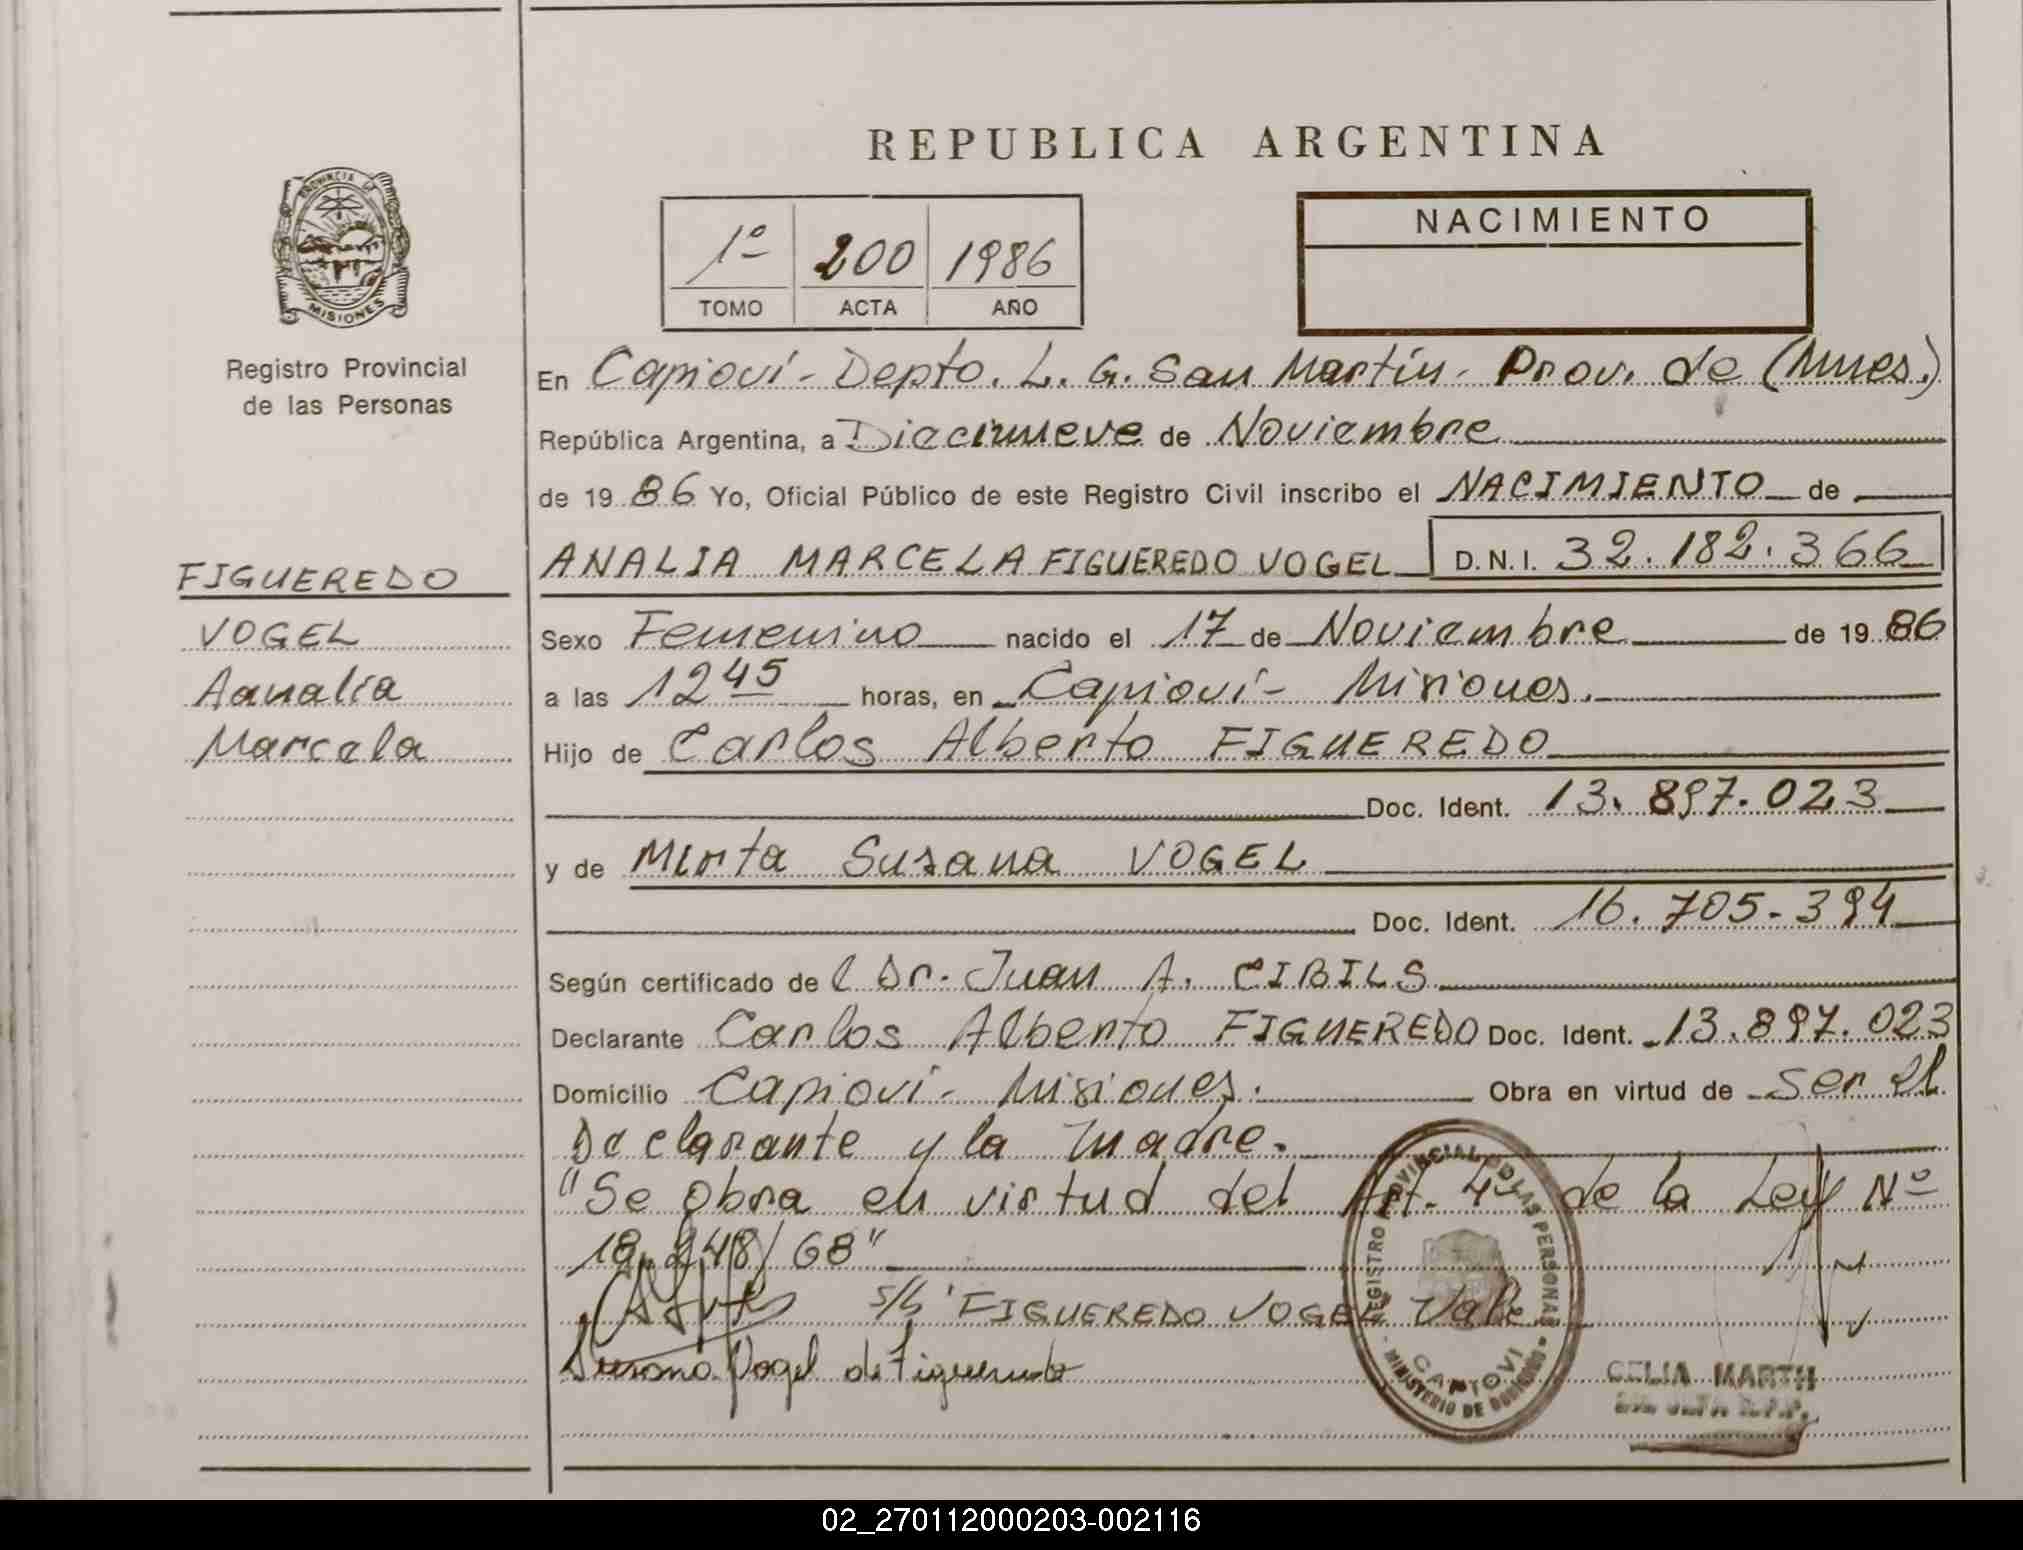 REPUBLICA ARGENTINA
PROVINCIA DE
MISIONES
Registro Provincial
de las Personas
1º 200 1986
TOMO ACTA AÑO
NACIMIENTO
En Capioví - Depto. L. G. San Martín - Prov. de (Mnes.)
República Argentina, a Diecinueve de Noviembre
de 19 86 Yo, Oficial Público de este Registro Civil inscribo el NACIMIENTO de
ANALIA MARCELA FIGUEREDO VOGEL D.N.I. 32.182.366
FIGUEREDO
VOGEL
Aanalia
Marcela
Sexo Femenino nacido el 17 de Noviembre de 19 86
a las 12 45 horas, en Capioví - Misiones.
Hijo de Carlos Alberto FIGUEREDO
Doc. Ident. 13.897.023
y de Mirta Susana VOGEL
Doc. Ident. 16.705.394
Según certificado del Dr. Juan A. CIBILS
Declarante Carlos Alberto FIGUEREDO Doc. Ident. 13.897.023
Domicilio Capioví - Misiones. Obra en virtud de Ser el
Declarante y la madre.
"Se obra en virtud del Art. 4º de la Ley Nº
18.248/68"
s/b "FIGUEREDO VOGEL Vale
Susana Vogel de Figueredo
REGISTRO PROVINCIAL DE LAS PERSONAS
CAPIOVI
MINISTERIO DE GOBIERNO
CELIA MARTH
02_270112000203-002116